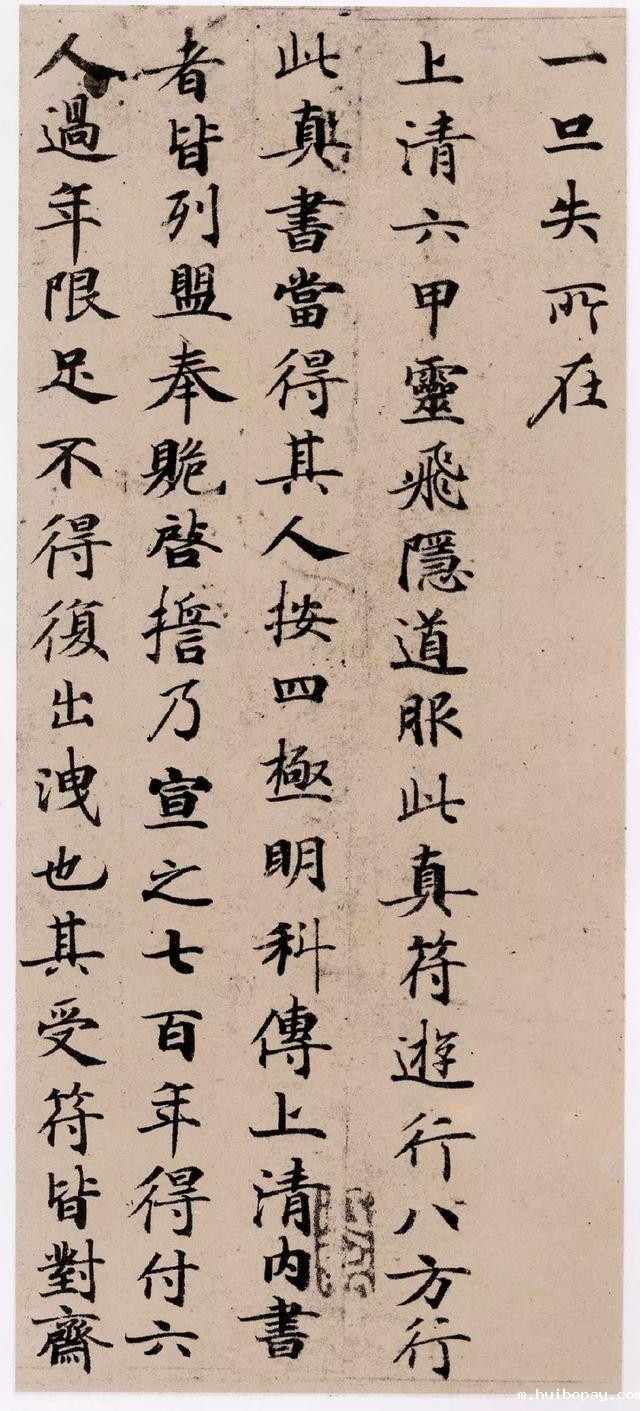 一旦失所在
上清六甲靈飛隱道服此真符遊行八方行
此真書當得其人按四極明科傳上清内書
者皆列盟奉贎啓擔乃宣之七百年得付六
人過年限足不得復出洩也其受符皆對齋
m.huibopay.com